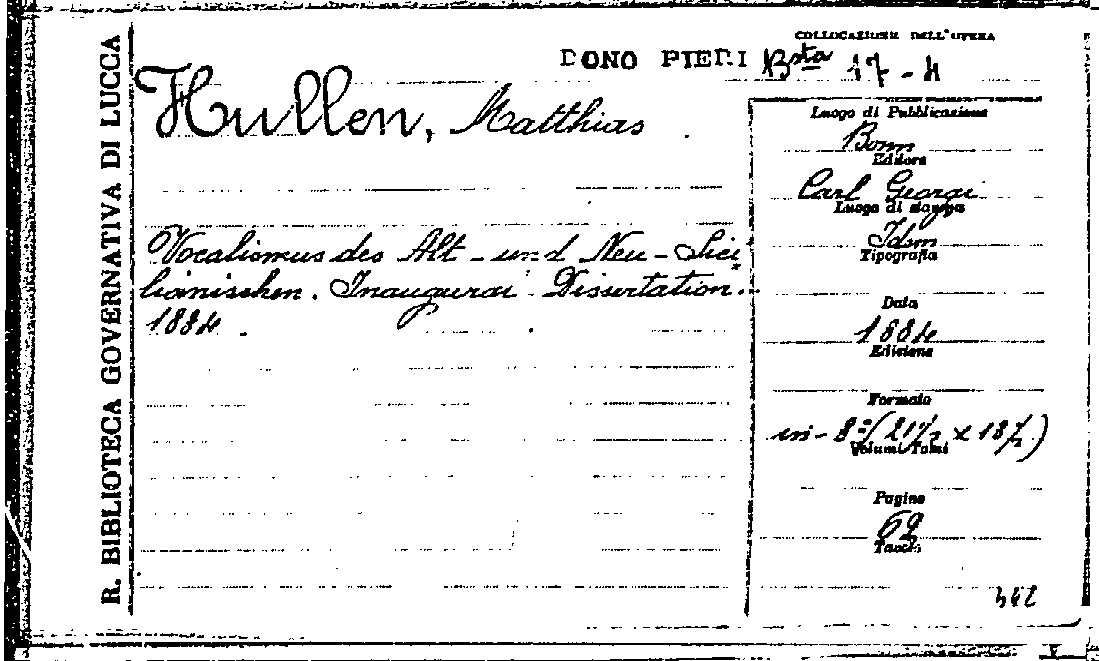 R. BIBLIOTECA GOVERNATIVA DI LUCCA
COLLOCAZIONE DELL'OPERA
DONO PIERI Bsta 17-4
Hullen, Matthias
Vocalismus des Alt - und Neu - Sici
lianischen. Inaugural Dissertation.
1884.
Luogo di Pubblicazione
Bonn
Editore
Carl Georgi
Luogo di stampa
Idem
Tipografia
Data
1884
Edizione
Formato
in-8° (21½ x 13½)
Volumi Tomi
Pagine
62
Tavole